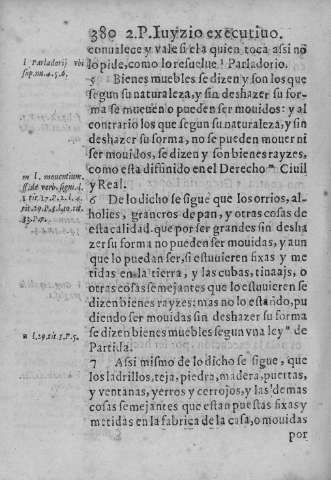 380 2.P. Iuyzio executiuo.
conualece y vale si el a quien toca assi no
lo pide, como lo resuelue l Parladorio.
5 Bienes muebles se dizen y son los que
segun su naturaleza, y sin deshazer su for-
ma se mueuen o pueden ser mouidos: y al
contrario los que segun su naturaleza, y sin
deshazer su forma, no se pueden mouer ni
ser mouidos, se dizen y son bienes rayzes,
como esta difinido en el Derecho m Ciuil
y Real.
6 De lo dicho se sigue que los orrios, al-
holies, graneros de pan, y otras cosas de
esta calidad que por ser grandes sin desha
zer su forma no pueden ser mouidas, y aun
que lo puedan ser, si estuuieren fixas y me
tidas en la tierra, y las cubas, tinaajs, o
otras cosas semejantes que lo estuuieren se
dizen bienes rayzes: mas no lo estando, pu
diendo ser mouidas sin deshazer su forma
se dizen bienes muebles segun vna ley n de
Partida.
7 Assi mismo de lo dicho se sigue, que
los ladrillos, teja, piedra, madera, puertas,
y ventanas, yerros y cerrojos, y las demas
cosas semejantes que estan puestas fixas y
metidas en la fabrica de la casa, o mouidas
por
l Parladorij vbi
sup.nu.4.5.6.
m l. mouentium.
ff. de verb. signi. l.
n l.29.tit.5.P.5.